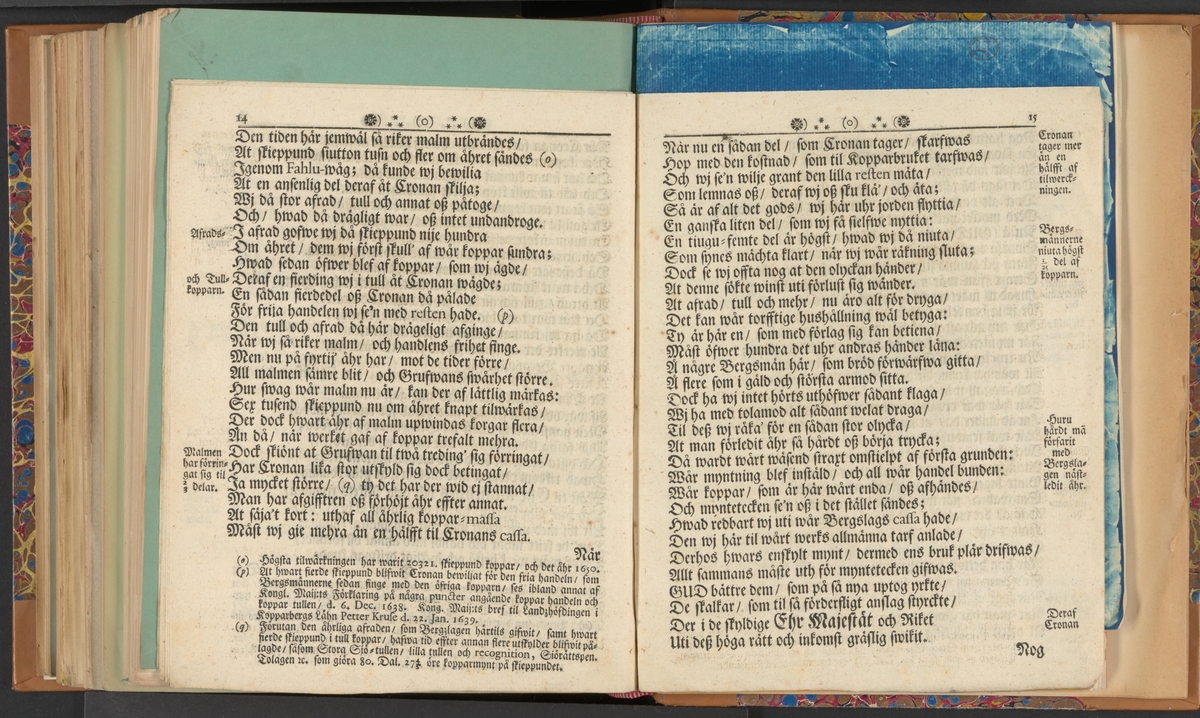 14
(o)
Den tiden här jemwäl så riker malm utbrändes/
At skieppund siutton tusn och fler om åhret sändes (o)
Igenom Fahlu-wåg; då kunde wj bewilia
At en ansenlig del deraf åt Cronan skilja;
Wj då stor afrad/ tull och annat oß påtoge/
Och/ hwad då drägligt war/ oß intet undandroge.
Afrads-
I afrad gofwe wj då skieppund nije hundra
Om åhret/ dem wj först skull' af wår koppar sundra;
Hwad sedan öfwer blef af koppar/ som wj ägde/
och Tull-
kopparn.
Deraf en fierding wj i tull åt Cronan wägde;
En sådan fierdedel oß Cronan då pålade
För frija handelen wj se'n med resten hade. (p)
Den tull och afrad då här drägeligt afginge/
När wj så riker malm/ och handlens frihet finge.
Men nu på fyrtij åhr har/ mot de tider förre/
All malmen sämre blit/ och Grufwans swårhet större.
Hur swag wår malm nu är/ kan der af lättlig märkas:
Sex tusend skieppund nu om åhret knapt tilwärkas/
Der dock hwart åhr af malm upwindas korgar flera/
Än då/ när werket gaf af koppar trefalt mehra.
Malmen
har förrin-
gat sig til
⅔ delar.
Dock skiönt at Grufwan til twå treding' sig förringat/
Har Cronan lika stor utskyld sig dock betingat/
Ja mycket större/ (q) ty det har der wid ej stannat/
Man har afgifften oß förhöjt åhr effter annat.
At säja't kort: uthaf all åhrlig koppar-massa
Mäst wj gie mehra än en hälfft til Cronans cassa.
När
(o) Högsta tilwärkningen har warit 20321. skieppund koppar/ och det åhr 1650.
(p) At hwart fierde skieppund blifwit Cronan bewiliat för den fria handeln/ som
Bergsmännerne sedan finge med den öfriga kopparn/ ses ibland annat af
Kongl. Maij:ts Förklaring på några puncter angående koppar handeln och
koppar tullen/ d. 6. Dec. 1638. Kong. Maij:ts bref til Landzhöfdingen i
Kopparbergs Lähn Petter Kruse d. 22. Jan. 1639.
(q) Förutan den åhrliga afraden/ som Bergzlagen härtils gifwit/ samt hwart
fierde skieppund i tull koppar/ hafwa tid effter annan flere utskylder blifwit på-
lagde/ såsom Stora Siö-tullen/ lilla tullen och recognition, Siörättspen.
Tolagen ꝛc. som giöra 80. Dal. 27⅔ öre kopparmynt på skieppundet.
15
(o)
När nu en sådan del/ som Cronan tager/ skarfwas
Hop med den kostnad/ som til Kopparbruket tarfwas/
Och wj se'n wilje grant den lilla resten mäta/
Som lemnas oß/ deraf wj oß sku klä'/ och äta;
Så är af alt det gods/ wj här uhr jorden flyttia/
En ganska liten del/ som wj få sielfwe nyttia:
En tiugu-femte del är högst/ hwad wj då niuta/
Som synes mächta klart/ när wj wår räkning sluta;
Dock se wj offta nog at den olyckan händer/
At denne sökte winst uti förlust sig wänder.
At afrad/ tull och mehr/ nu äro alt för dryga/
Det kan wår torfftige hushållning wäl betyga:
Ty är här en/ som med förlag sig kan betiena/
Mäst öfwer hundra det uhr andras händer läna:
Å någre Bergsmän här/ som bröd förwärfwa gitta/
Å flere som i gäld och största armod sitta.
Dock ha wj intet hörts uthöfwer sådant klaga/
Wj ha med tolamod alt sådant welat draga/
Til deß wj råka' för en sådan stor olycka/
At man förledit åhr så hårdt oß börja trycka;
Då wardt wårt wäsend straxt omstielpt af första grunden:
Wår myntning blef inställd/ och all wår handel bunden:
Wår koppar/ som är här wårt enda/ oß afhändes/
Och myntetecken se'n oß i det stället sändes;
Hwad redbart wj uti wår Bergslags cassa hade/
Den wj här til wårt werks allmänna tarf anlade/
Derhos hwars enskylt mynt/ dermed ens bruk plär drifwas/
Allt sammans måste uth för myntetecken gifwas.
GUD bättre dem/ som på så nya uptog yrkte/
De skalkar/ som til så förderfligt anslag styrckte/
Der i de skyldige Ehr Majestät och Riket
Uti deß höga rätt och inkomst gräslig swikit.
Nog
Cronan
tager mer
än en
hälfft af
tilwerck-
ningen.
Bergs-
männerne
niuta högst
del af
kopparn.
Huru
hårdt mā
förfarit
med
Bergsla-
gen näst-
ledit åhr.
Deraf
Cronan